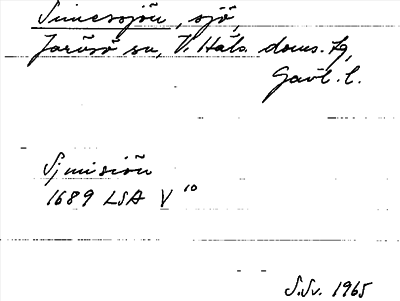 Simessjön, sjö,
Järvsö sn, V. Häls. doms. fg,
Gävl. l.
Sjmisiön
1689 LSA V 10
S.Sv. 1965